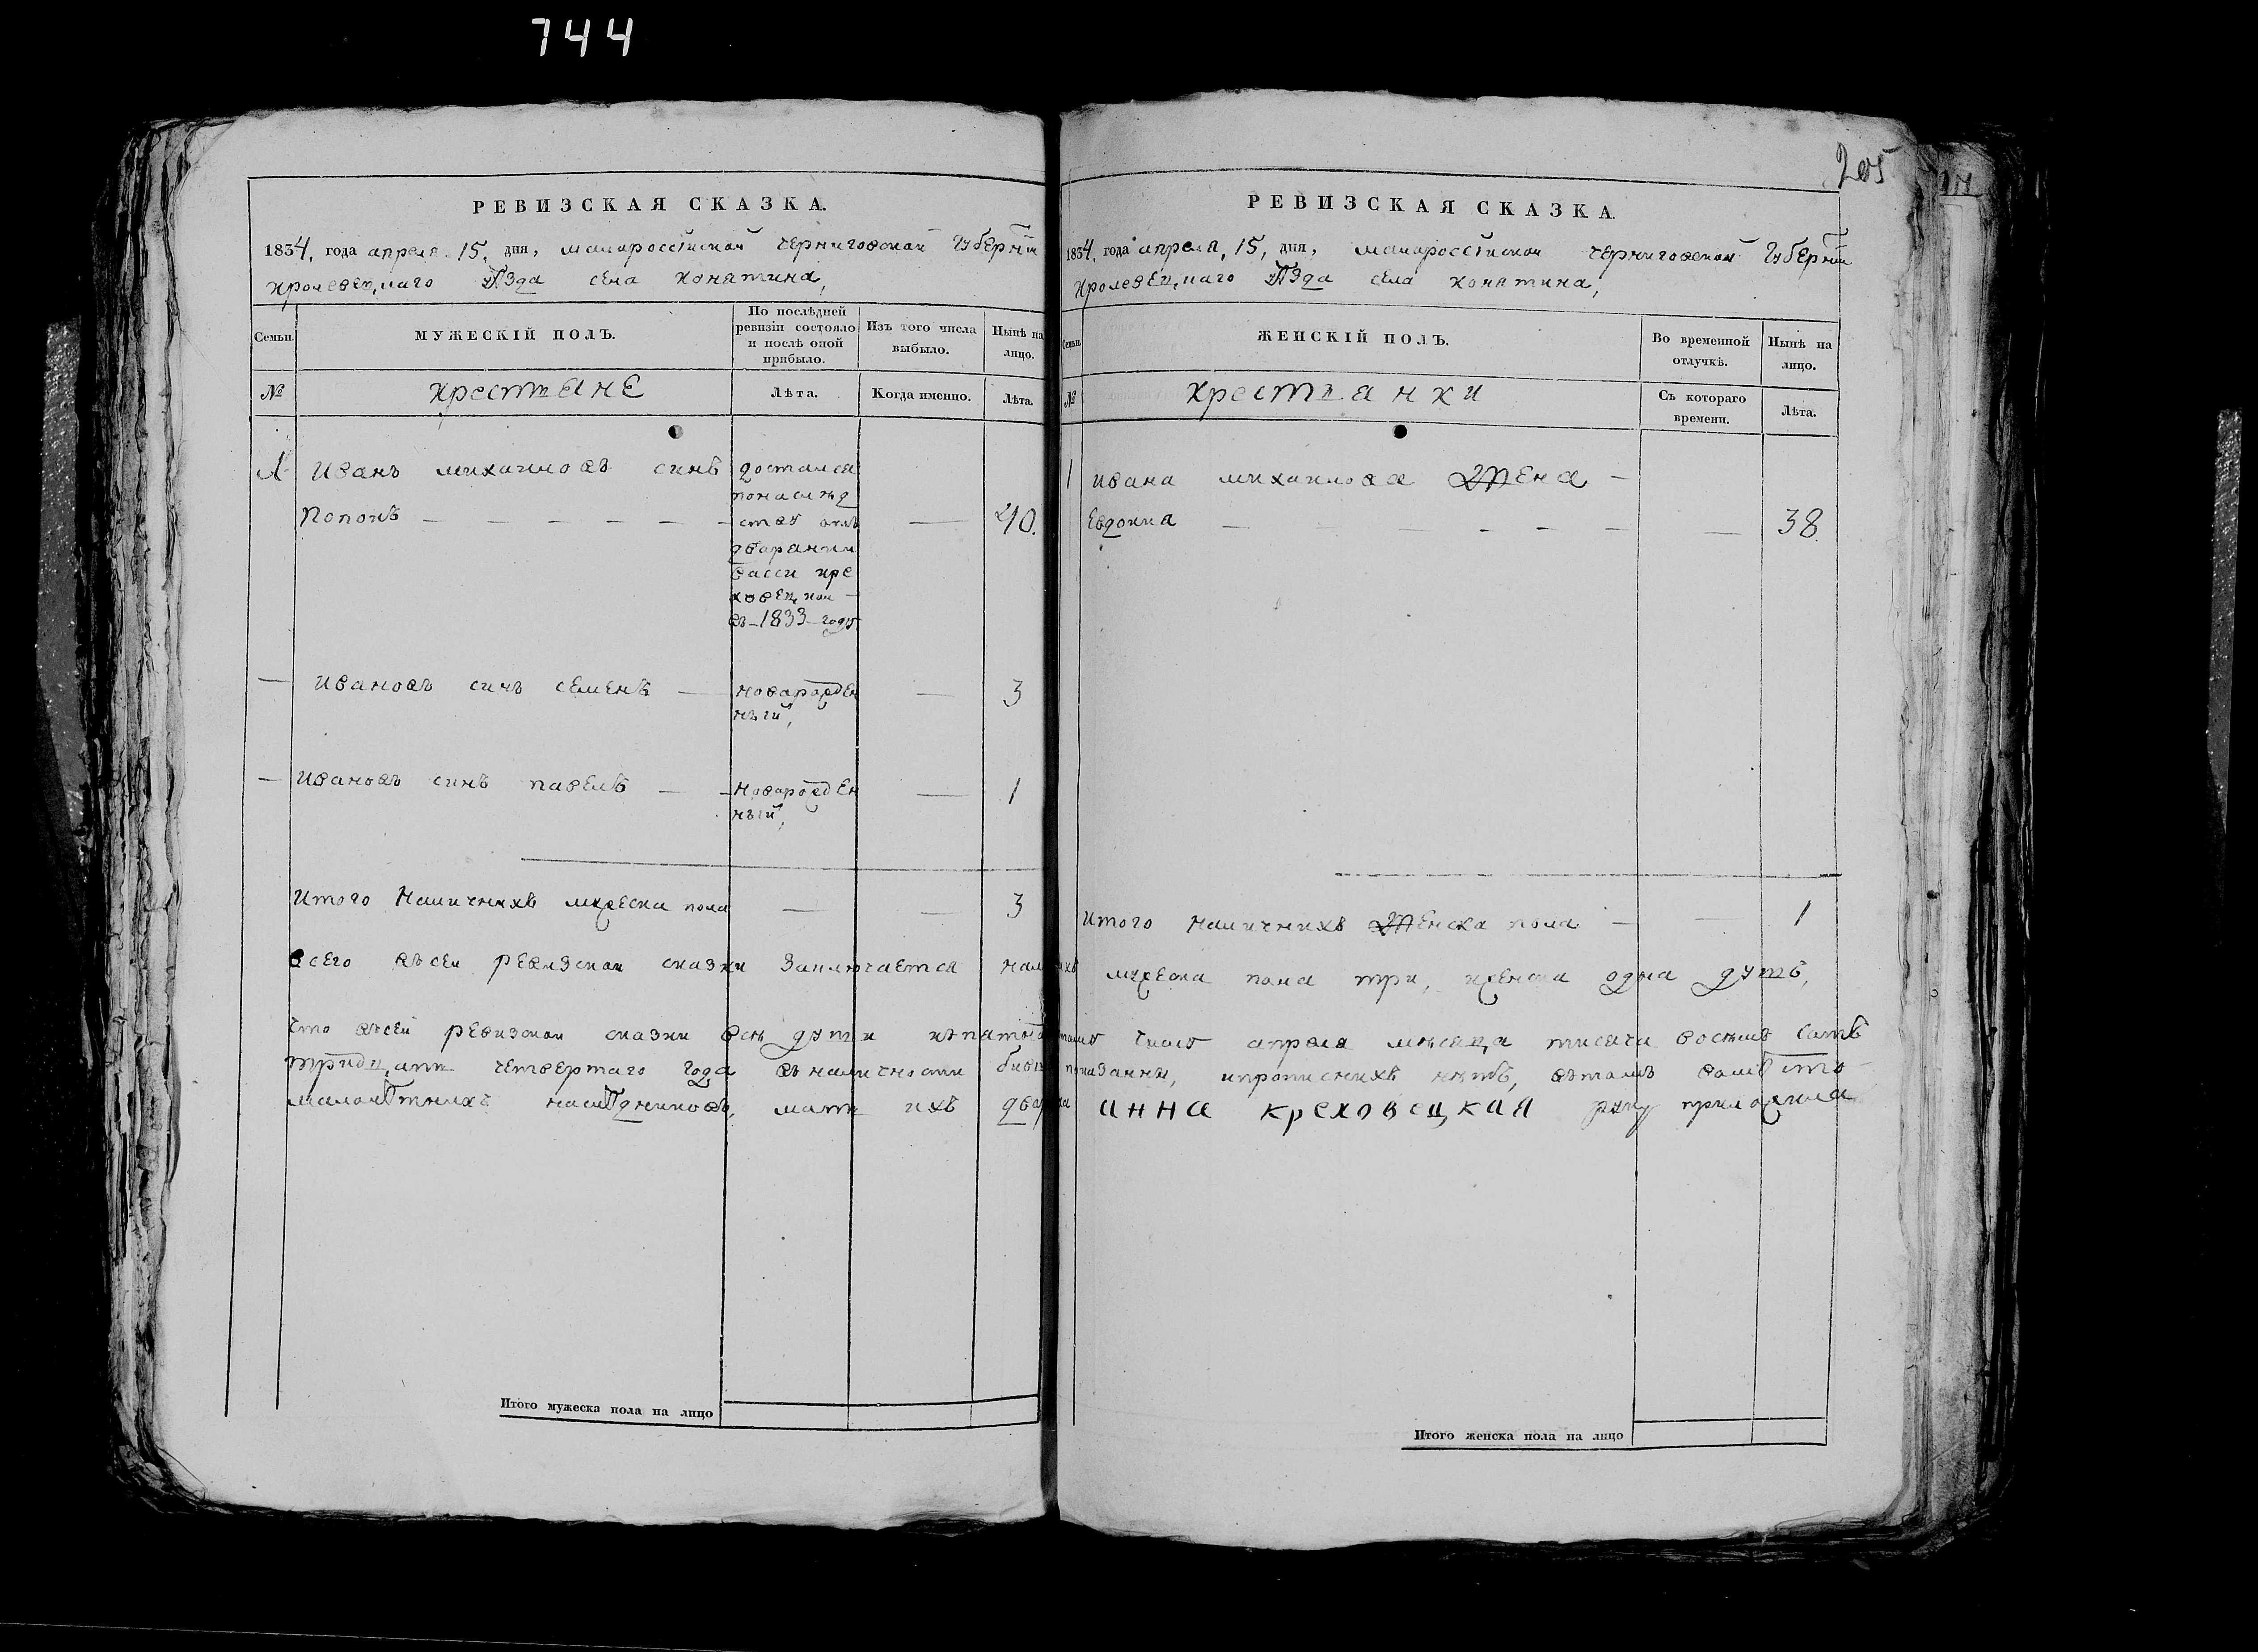 744
205
РЕВИЗСКАЯ СКАЗКА.
1834, года апреля 15, дня, малоросссійской черниговской губерніи
кролевец,каго уѣзда села конятина,
Семьи.
МУЖЕСКІЙ ПОЛЪ.
По послѣдней ревизіи состояло и послѣ оной прибыло.
Изъ того числа выбыло.
Нынѣ на лицо.
№
крестьяне
Лѣта.
Когда именно.
Лѣта.
1 иванъ михаиловъ синъ достался
понаслѣд
Попокъ — — — — — — ству отъ — 40.
дваранки
васси кре
ховец,кой —
въ 1833 году
— ивановъ синъ семенъ — новарожден — 3
ный,
— ивановъ синъ павелъ — новарожден — 1
ный,
Итого наличнихъ мужеска пола — — 3
РЕВИЗСКАЯ СКАЗКА.
1834, года апреля, 15, дня, малоросссійской черниговской губерніи
кролевец,каго уѣзда села конятина,
Семьи.
ЖЕНСКІЙ ПОЛЪ.
Во временной отлучкѣ.
Нынѣ на лицо.
№
крестьянки
Съ котораго времени.
Лѣта.
1 ивана михаилова жена —
Евдокия — — — — — — — 38.
Итого наличнихъ женска пола — — 1
всего въсей ревизской сказки заключается мужеска пола три, женска одна душъ,
что въсей ревизской сказки всѣ души числа апреля мѣсяца тисяча восемъ сотъ
тридц,ать четвертаго года въналичности показанны, ипрописнихъ нѣтъ, вътомъ вамѣсто
малолѣтнихъ наслѣдниковъ, мать ихъ анна креховецкая руку приложила
Итого мужеска пола на лицо
Итого женска пола на лицо